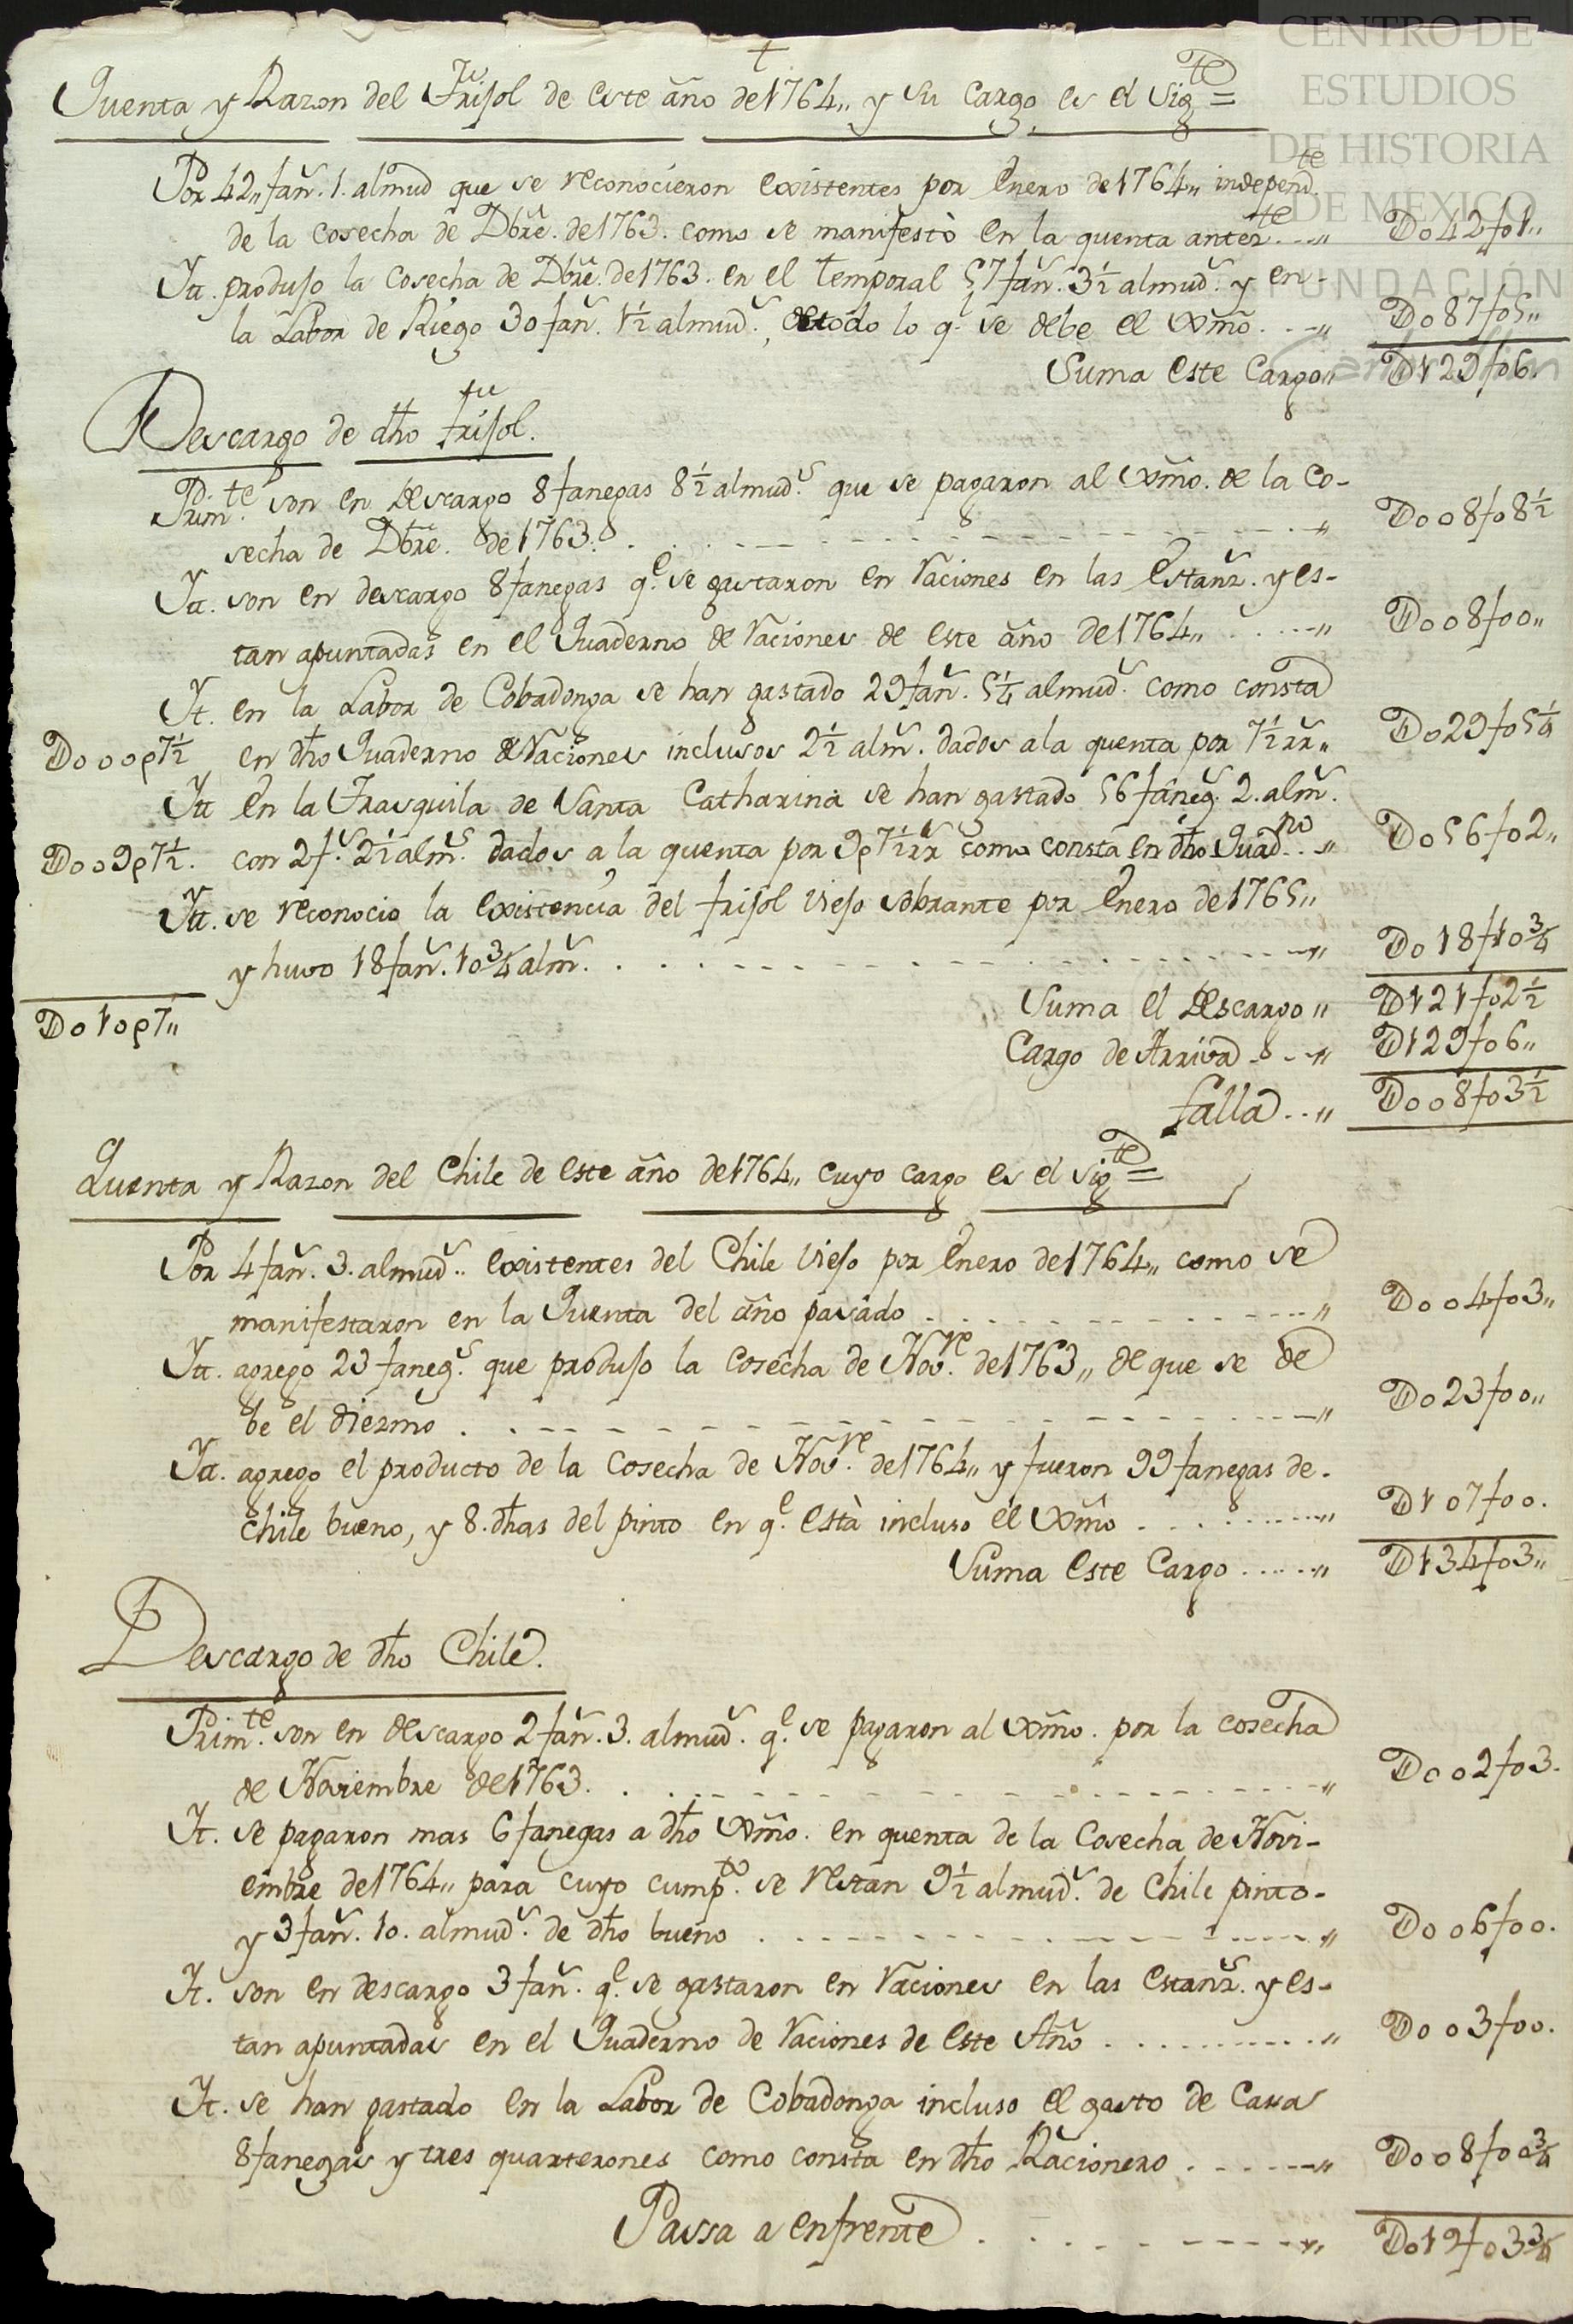 CENTRO DE
ESTUDIOS
DE HISTORIA
DE MEXICO
FUNDACIÓN
†
Quenta y Razon del Frisol de este año de 1764,, y su cargo es el Sigte =
Por 42,, fans. 1. almud que se reconocieron existentes por Enero de 1764,, independte
de la cosecha de Dbre. de 1763. como se manifestò en la quenta anterte. ..,, Do42fo1,,
Yt. produso la Cosecha de Dbre. de 1763. en el temporal 57 fans. 3½ almuds. y en-
la Labor de Riego 30 fans. 1½ almuds., de todo lo q. se debe el Dxmo. ..,, Do87fo5,,
Suma este Cargo,, D129fo6.
Descargo de dho frisol.
Primte. son en descargo 8 fanegas 8½ almuds. que se pagaron al Dxmo. de la Co-
secha de Dbre. de 1763. ,, Doo8fo8½
Yt. son en descargo 8 fanegas qe. se gastaron en raciones en las Estans. y es-
tan apuntadas en el Quaderno de raciones de este año de 1764,, ....,, Doo8foo,,
Yt. en la Labor de Cobadonga se han gastado 29 fans. 5¼ almuds. como consta
Dooop7½ en dho Quaderno de Raciones inclusos 2½ alms. dados a la quenta por 7½ rrs,, Do29fo5¼
Yt en la Trasquila de Santa Catharina se han gastado 56 fanegs. 2. alms.
Doo9p7½. con 2fs. 2½ alms. dados a la quenta por 9p7½ rrs como consta en dho Quadno. ,, Do56fo2,,
Yt. se reconocio la existencia del frisol vieso sobrante por Enero de 1765,,
y huvo 18 fans. 10¾ alms. . ,, Do18f10¾
Do10p7,,
Suma el descargo,, D121fo2½
Cargo de Arriva ..,, D129fo6,,
falla ..,, Doo8fo3½
Quenta y Razon del Chile de este año de 1764,, cuyo cargo es el Sigte =
Por 4 fans. 3. almuds. existentes del Chile vieso por Enero de 1764,, como se
manifestaron en la Quenta del año pasado . ,, Doo4fo3,,
Yt. agrego 23 fanegs. que produso la Cosecha de Novre. de 1763,, de que se de
be el diezmo . ,, Do23foo,,
Yt. agrego el producto de la Cosecha de Novre. de 1764,, y fueron 99 fanegas de-
chile bueno, y 8. dhas del pinto en qe. està incluso el Dxmo . ,, D107foo.
Suma este Cargo .....,, D134fo3,,
Descargo de dho Chile.
Primte. son en descargo 2 fans. 3. almuds. qe. se pagaron al Dxmo. por la cosecha
de Noviembre de 1763. . ,, Doo2fo3.
Yt. se pagaron mas 6 fanegas a dho Dxmo. en quenta de la Cosecha de Novi-
embre de 1764,, para cuyo cumpto. se restan 9½ almuds. de Chile pinto-
y 3 fans. 10. almuds. de dho bueno . ,, Doo6foo.
Yt. son en descargo 3 fans. qe. se gastaron en raciones en las estans. y es-
tan apuntadas en el Quaderno de raciones de este Año ..........,, Doo3foo.
Yt. se han gastado en la Labor de Cobadonga incluso el gasto de Casas
8 fanegas y tres quarterones como consta en dho Racionero . ,, Doo8foo¾
Passa a enfrente . ,, Do19fo3¾